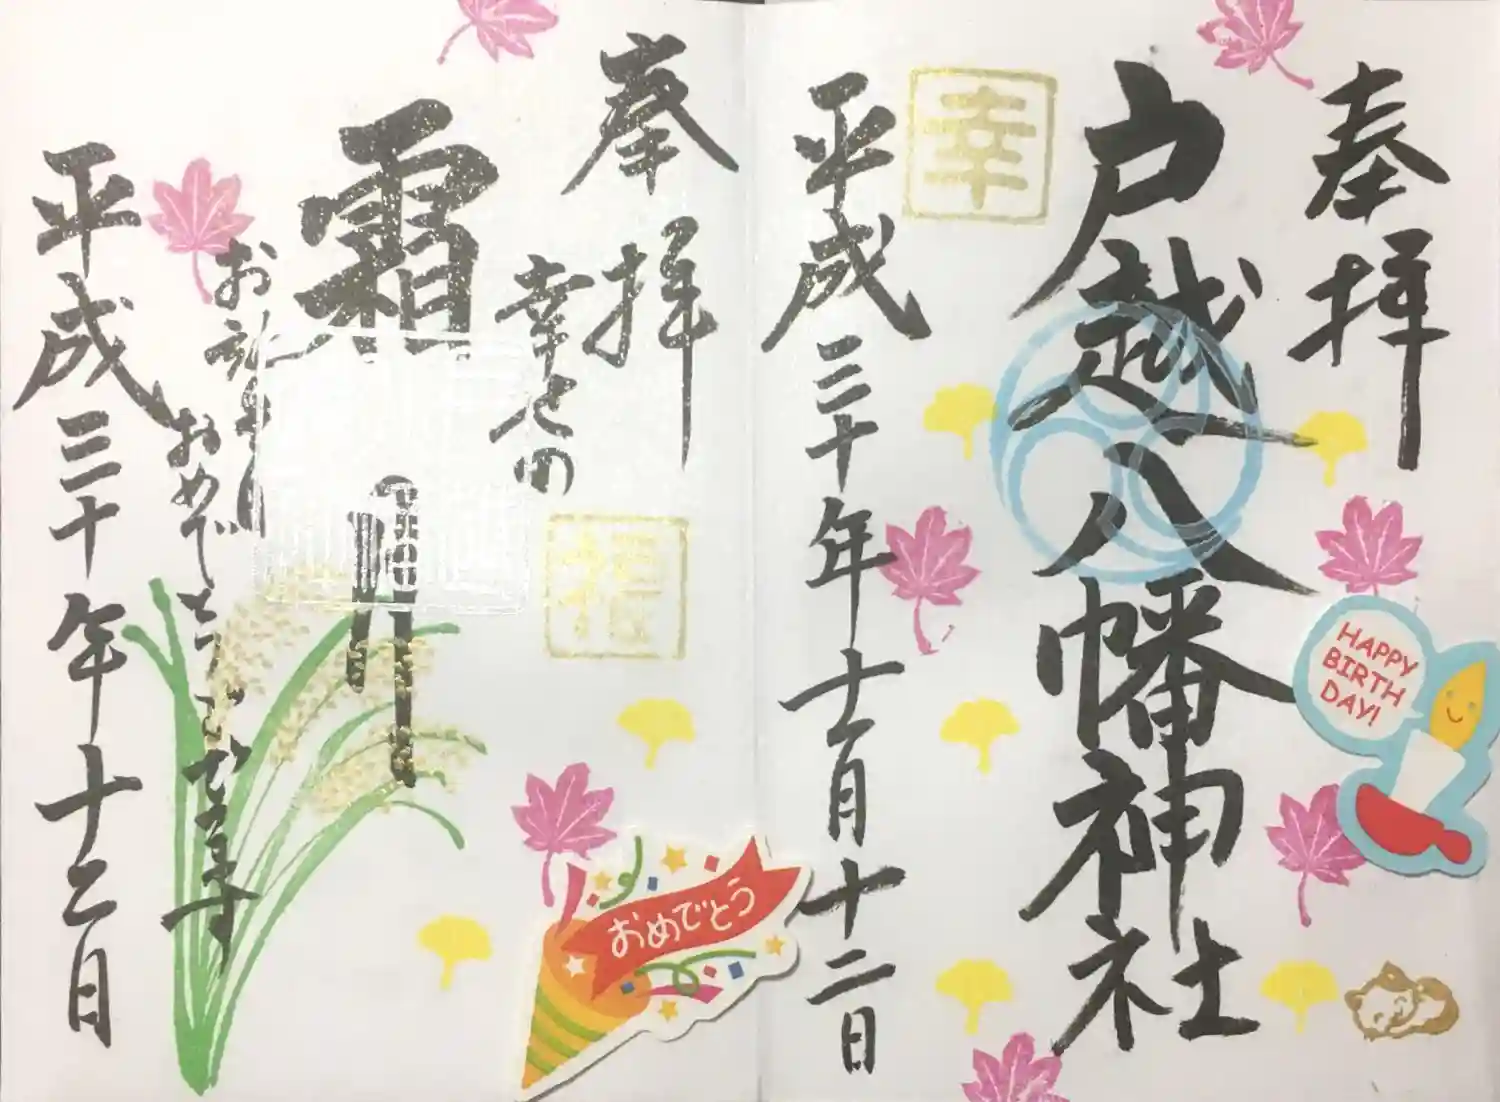 奉拝
戸越八幡神社
幸
平成三十年十一月十二日
HAPPY
BIRTH
DAY!
奉拝
幸せの
福
霜月
お誕生日
おめでとうございます
平成三十年十二日
おめでとう